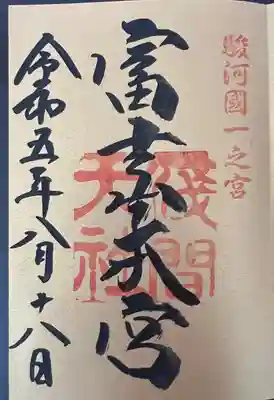 駿河國一之宮
富士本宮
浅間大社
令和五年八月十八日